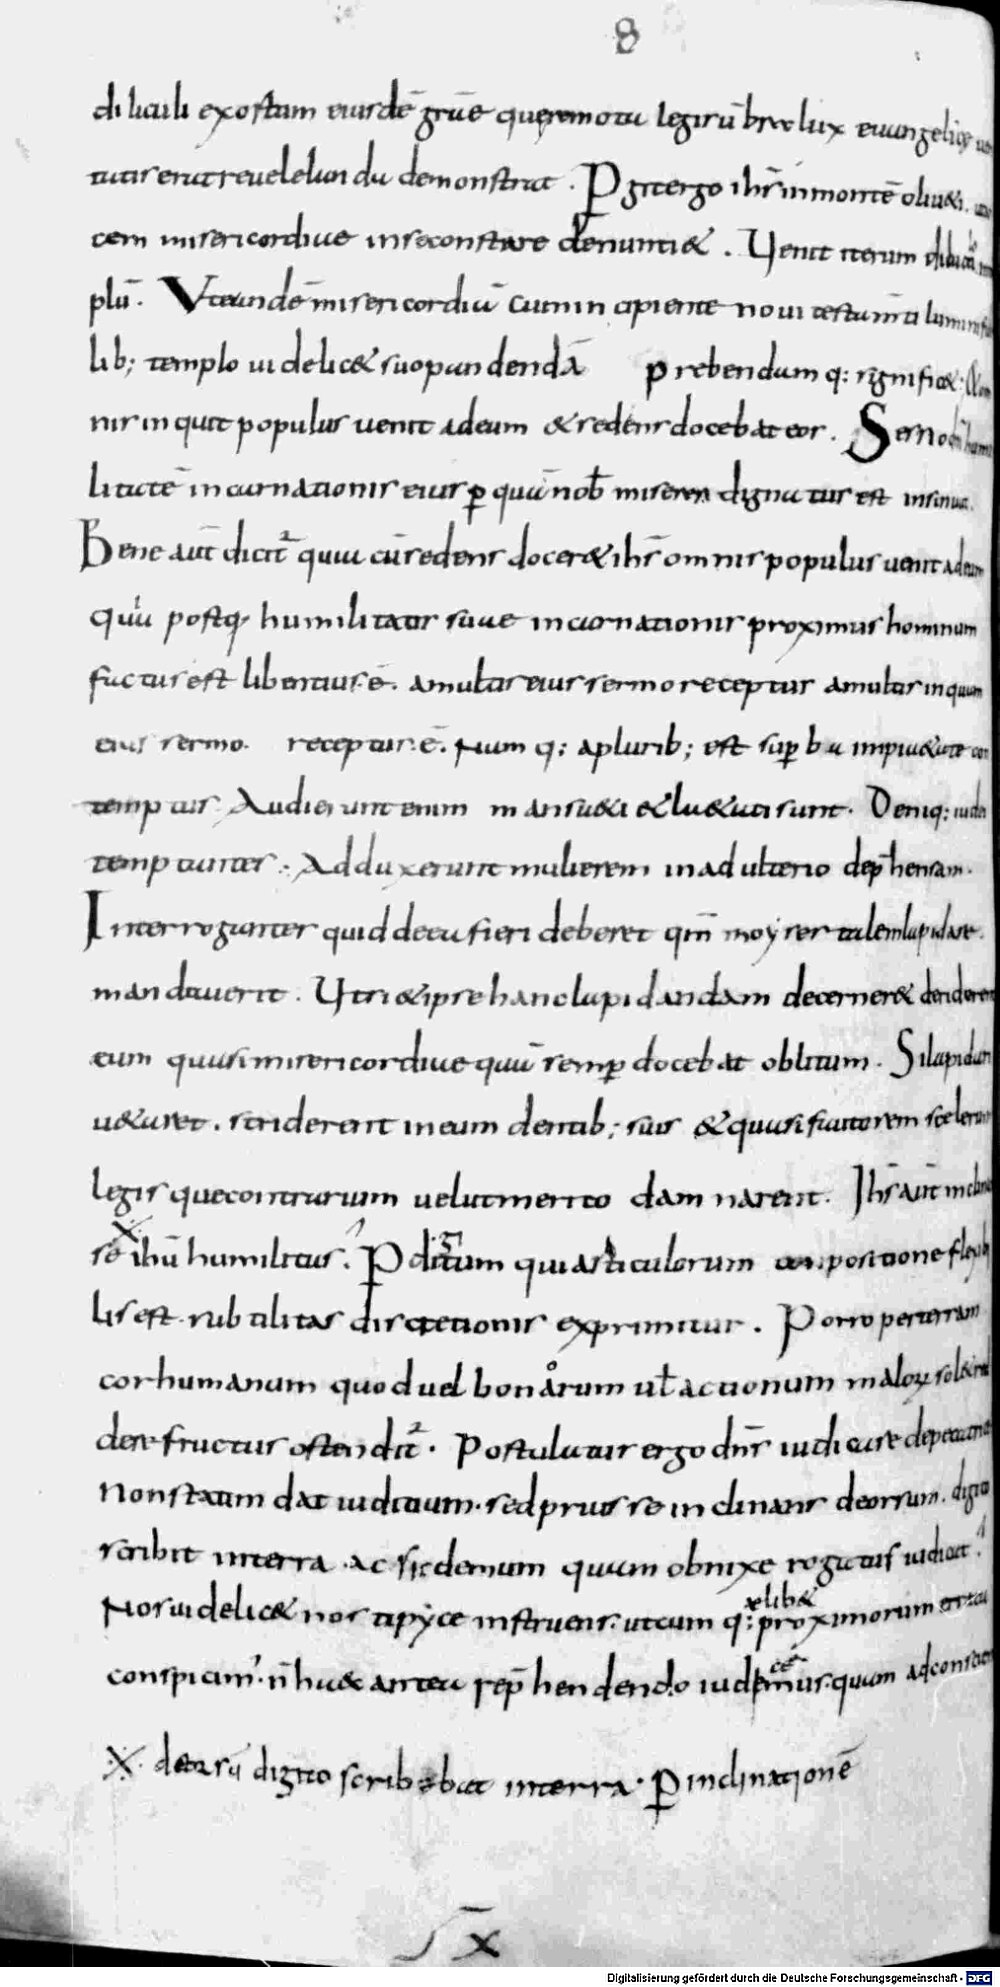 8
diluculi exortum eiusdē grae que remota legis ūbra lux euangelicę ueri
tatis erat reuelelanda demonstrat. Pgit ergo ihs in montē oliu&i.
cem misericordiae in se constare denunti&. Uenit iterum diluculo in tē
plū. Ut eandē misericordiā cum incipiente noui testam̄ti lumine fide
lib; templo uidelic& suo pandendā prebendam q: signific&.
nis inquit populus uenit ad eum & sedens docebat eos. Sessio dn̄i humi
litatē incarnationis eius p quā nob̄ misereri dignatus est insinuat.
Bene aūt dicit quia cū sedens docer& ihs omnis populus uenit ad eum
quia postq̄ humilitate suae incarnationis proximus hominum
factus est libentius ē. a multis eius sermo receptus a multis in quam
eius sermo. receptus ē. Nam q: a plurib; est supba impi&ate con
temptus. Audierunt enim mansu&i & l&ati sunt. Deniq: iudei
temptantes. Adduxerunt mulierem in adulterio dep̄hensam.
Interrogantes quid de ea fieri deberet qm̄ moyses talem lapidare
mandauerit. Ut si & ipse hanc lapidandam decerner& deriderent
eum quasi misericordiae quā semp docebat oblitum. Si lapidari
u&aret. striderent in eum dentib; suis & quasi fautorem scelerum
legis que contrarium uelut merito damnarent. Ihs aūt inclinans
se X ihū humilitas. P digitum qui articulorum conpositione flexib
lis est subtilitas discretionis exprimitur. Porro per terram
cor humanum quod uel bonarum ul̄ actionum maloꝝ solet red
dere fructus ostendit. Postulatur ergo dn̄s iudicare de peccatrice
Non statim dat iudicium. sed prius se inclinans deorsum. digito
scribit in terra. ac sic demum quam obnixe rogatus iudicat.
Nos uidelic& nos typyce instruens. ut cum q:elib& proximorum errata
conspicim'. n̄ haec antea rep̄hendendo iudicemus. quam ad conscientiae
X deorsū digito scribebat in terra. P inclinationē
x
Digitalisierung gefördert durch die Deutsche Forschungsgemeinschaft - DFG